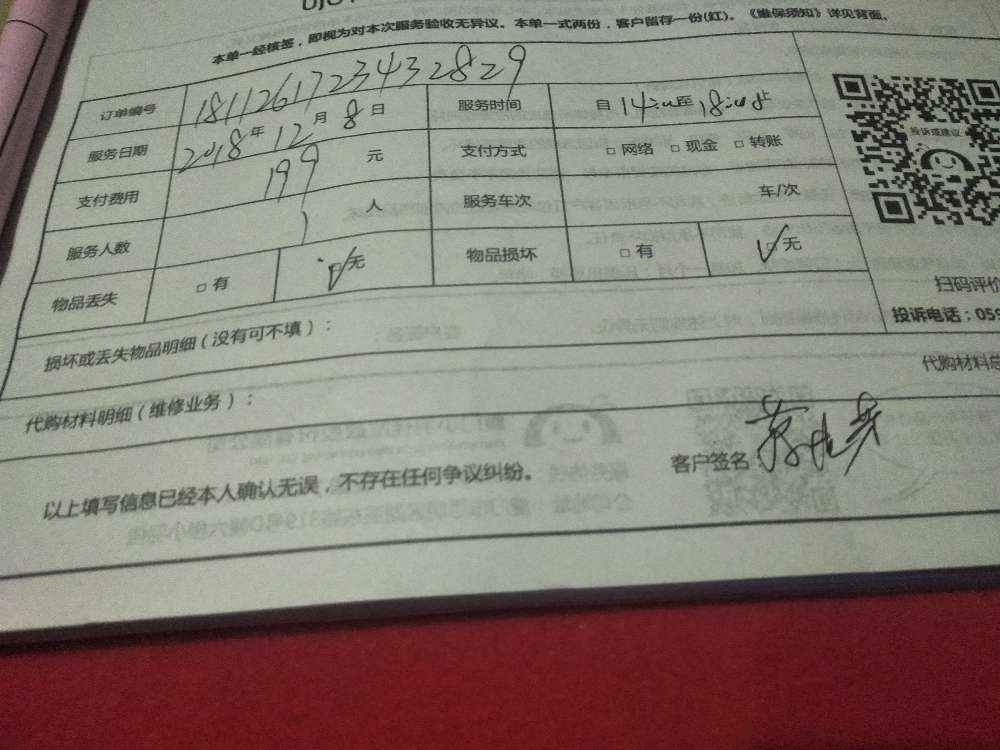 本单一经核签，即视为对本次服务验收无异议。本单一式两份，客户留存一份(红)。《维保须知》详见背面。
订单编号 181126172343282 9
服务日期 2018年12月8日 服务时间 自14:00至18:00止
支付费用 199元 支付方式 □网络 □现金 □转账
服务人数 1人 服务车次 车/次
物品丢失 □有 □无 物品损坏 □有 □无
投诉或建议
扫码评价
投诉电话：059
损坏或丢失物品明细（没有可不填）：
代购材料明细（维修业务）：
代购材料总
以上填写信息已经本人确认无误，不存在任何争议纠纷。
客户签名：